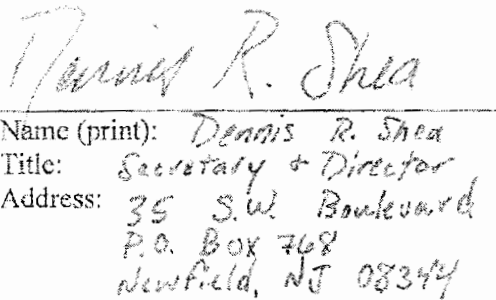 Dennis R. Shea
Name (print): Dennis R. Shea
Title: Secretary & Director
Address: 35 S.W. Boulevard
P.O. Box 768
Newfield, NJ 08344